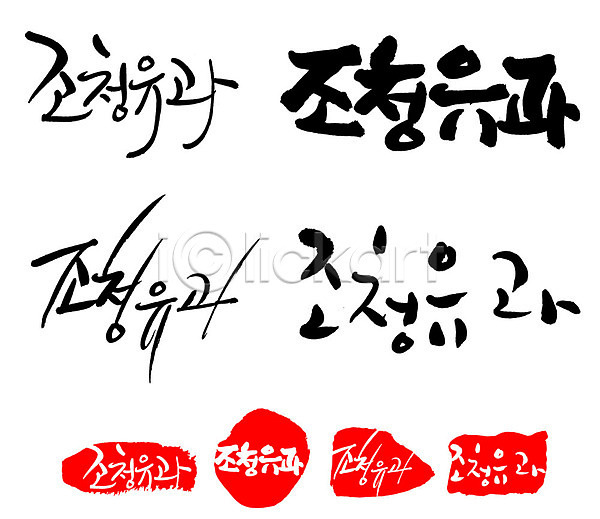 조청유과 조청유과
iclickart
조청유과 조청유과
조청유과 조청유과 조청유과 조청유과